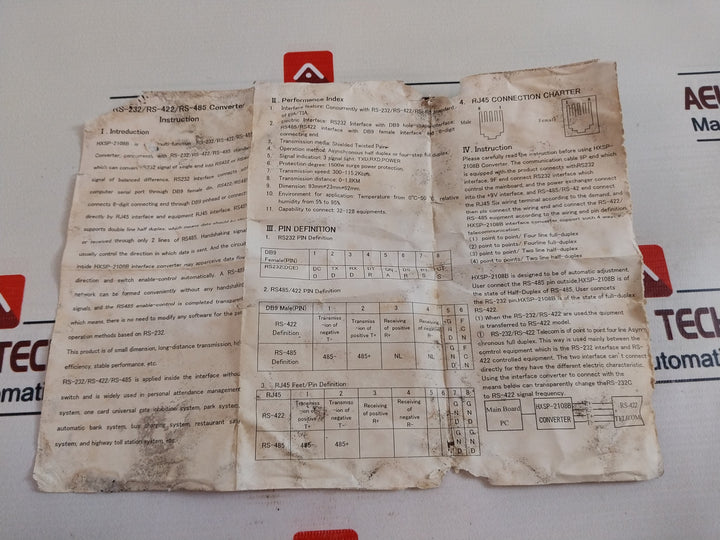 RS-232/RS-422/RS-485 Converter
Instruction
I. Inroduction
HXSP-2108B is multi-function RS-232/RS-422/RS-485
Converter, concurrents with RS-232/RS-422/RS-485 standard
which can convert RS-232 signal of single end into RS422 or RS485
signal of balanced difference. RS-232 interface connects
computer serial port through DB9 female pin. RS422/RS485
connects 6-digit connecting end through DB9 pinhead or connect
directly by RJ45 interface and equipment RJ45 interface. RS485
supports double line half duplex, which means data should
or received through only 2 lines of RS485. Handshaking signal
usually control the direction in which data is sent. And the circuit
inside HXSP-2108B interface converter may apperceive data flow
direction and switch enable-control automatically. A RS-485
network can be formed conveniently without any handshaking
signals, and the RS485 enable-control is completed transparently
which means, there is no need to modify any software for the past
operation methods based on RS-232.
This product is of small dimension, long-distance transmission, high
efficiency, stable performance, etc.
RS-232/RS-422/RS-485 is applied inside the interface without
switch and is widely used in personal attendance management
system, one card universal gate inhibition system, park system,
automatic bank system, bus charging system, restaurant sale
system, and highway toll station system, etc.
II. Performance Index
1. Interface feature: Concurrently with RS-232/RS-422/RS-485 standard
of EIA/TIA.
2. Electric Interface: RS232 Interface with DB9 hole type interface;
RS485/RS422 interface with DB9 female interface and 6-digit
connecting end
3. Transmission media: Shielded Twisted Pair
4. Operation method: Asynchronous half duplex or four-step full duplex
5. Signal indication: 3 signal light, TXD,RXD,POWER
6. Protection degree: 1500w surge power protection.
7. Transmission speed: 300-115.2Kbps
8. Transmission distance: 0-1.8KM
9. Dimension 93mm*23mm*92mm.
10. Environment for application: Temperature from 0℃-50℃, relative
humidity from 5% to 95%
11. Capability to connect 32-128 equipments.
III. PIN DEFINITION
1. RS232 PIN Definition
DB9 Female(PIN) 1 2 3 4 5 6 7 8
RS232(DCE)
2. RS485/422 PIN Definition
DB9 Male(PIN) 1 2 3 4 5 6
RS-422 Definition Transmiss-ion of negative T- Transmiss-ion of positive T+ Receiving of positive R+ Receiving of negative R- GND NC
RS-485 Definition 485- 485+ NL NL GND NC
3. RJ45 Feet/Pin Definition
RJ45 1 2 3 4 5 6 7 8
RS-422 Transmiss-ion of negative T+ Transmiss-ion of negative T- Receiving of positive R+ Receiving of negative R- GND GND
RS-485 485- 485+ GND GND
4. RJ45 CONNECTION CHARTER
Male Female
IV. Instruction
Please carefully read the instruction before using HXSP-
2108B Converter. The communication cable 9P end which
is equipped with the product connects withRS232
interface, 9F end connect RS232 interface which
control the mainboard, and the power exchanger connect
into the +9V interface, and RS-485/RS-42 end connect
the RJ45 Six wiring terminal according to the demand, and
then pls connect the wiring end and connect the RS-
485 equipment according to the wiring end pin definition.
HXSP-2108B interface converter support such 4 wayes
telecommunication:
(1) point to point/ Four line full-duplex
(2) point to points/ Fourline full-duplex
(3) point to point/ Two line half-duplex
(4) point to points/ Two line half-duplex
HXSP-2108B is designed to be of automatic adjustment.
User connect the RS-485 pin outside,HXSP-2108B is of
the state of Half-Duplex of RS-485. User connects
the RS-232 pin,HXSP-2108B is of the state of full-duplex
RS-422.
(1) When the RS-232/RS-422 are used,the quipment
is transferred to RS-422 model.
① RS-232/RS-422 Telecom is of point to point four line Asyn-
chronous full duplex. This way is used mainly between the
comtrol equipment which is the RS-232 interface and RS-
422 controlled equipment. The two interface can't connect
directly for they have the different electric characteristic.
Using the interface converter to connect with the
means below can transparently change theRS-232C
to RS-422 signal frequency.
Main Board PC
HXSP-2108B CONVERTER
RS-422 TELECOM
TECH
Automation
AEL
TECH
Automati